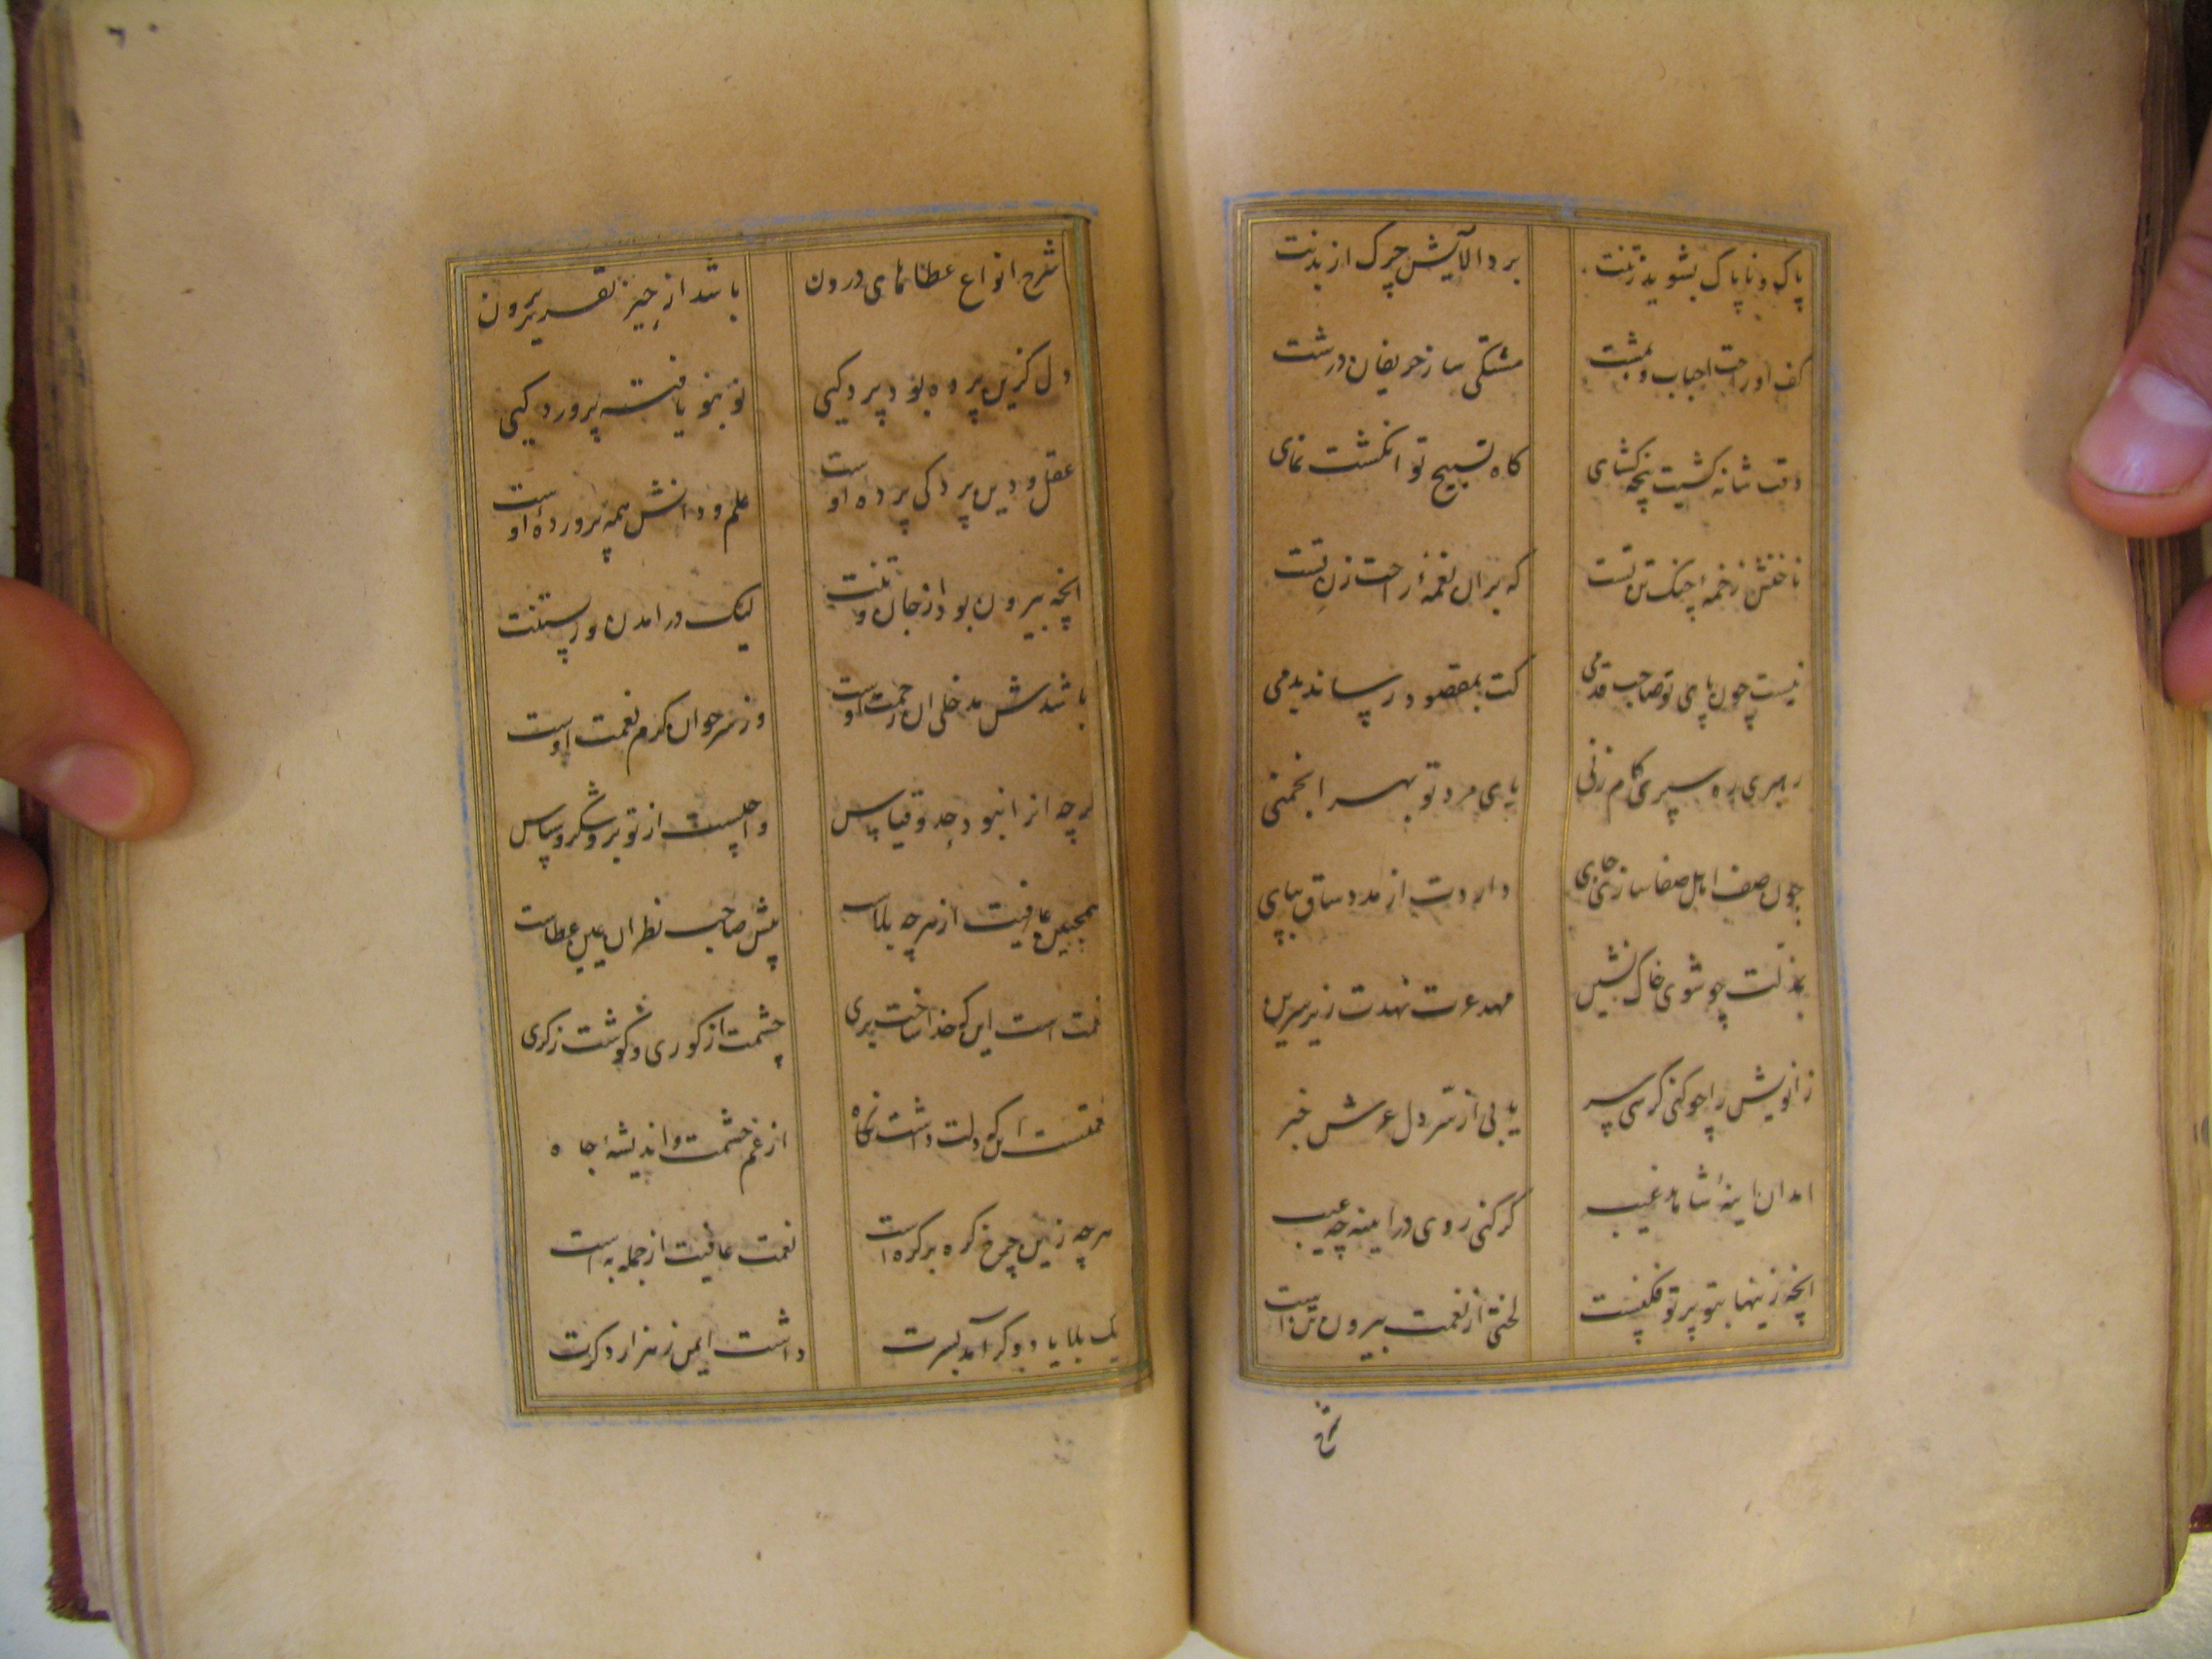 پاک و ناپاک بشوید ز تنت
برد الایش چرک از بدنت
کف او راحت احباب و بمشت
مشتکی ساز حریفان درشت
وقت شانه کشیت پنجه کشای
کاه تسبیح تو انکشت نمای
ناخنش زخمه چنک تن تست
که بران نغمه راحت زن تست
نیست چون پای تو صاحب قدمی
کت بمقصود رساند بدمی
رهبری ره سپری کام زنی
پای مرد تو بهر انجمنی
چون صف اهل صفا سازی جای
داردت از مدد ساق بپای
چو شوی خاک نشین
مهد عزت نهدت زیر سرین
زانویش را چو کنی کرسی سر
یابی از سر دل عرش خبر
امد ان اینه شاهد غیب
کر کنی روی در اینه چه عیب
انچه زینها بتو پرتو فکنیست
لختی از نعمت بیرون تن است
شرح
شرح انواع عطاهای درون
باشد از حیز تقریر برون
دل کزین پرده بود پردکیی
نو بنو یافته پروردکیی
عقل و دین پردکی پرده اوست
علم و دانش همه پرورده اوست
انچه بیرون بود از جان و تنت
لیک در امدن و رستنت
باشدش مدخلی ان رحمت اوست
وز سر خوان کرم نعمت اوست
هر چه انرا نبود حد و قیاس
واجبست از تو برو شکر و سپاس
همچنین عافیت از هر چه بلاست
پیش صاحب نظران عین عطاست
نعمت است این که خدا ساخت بری
چشمت از کوری و کوشت ز کری
نعمتست این که دلت داشت نکاه
از غم حشمت و اندیشه جاه
هر چه زین چرخ کره بر کره است
نعمت عافیت از جمله به است
یک بلا یا دو کر امد بسرت
داشت ایمن ز هزار دکرت